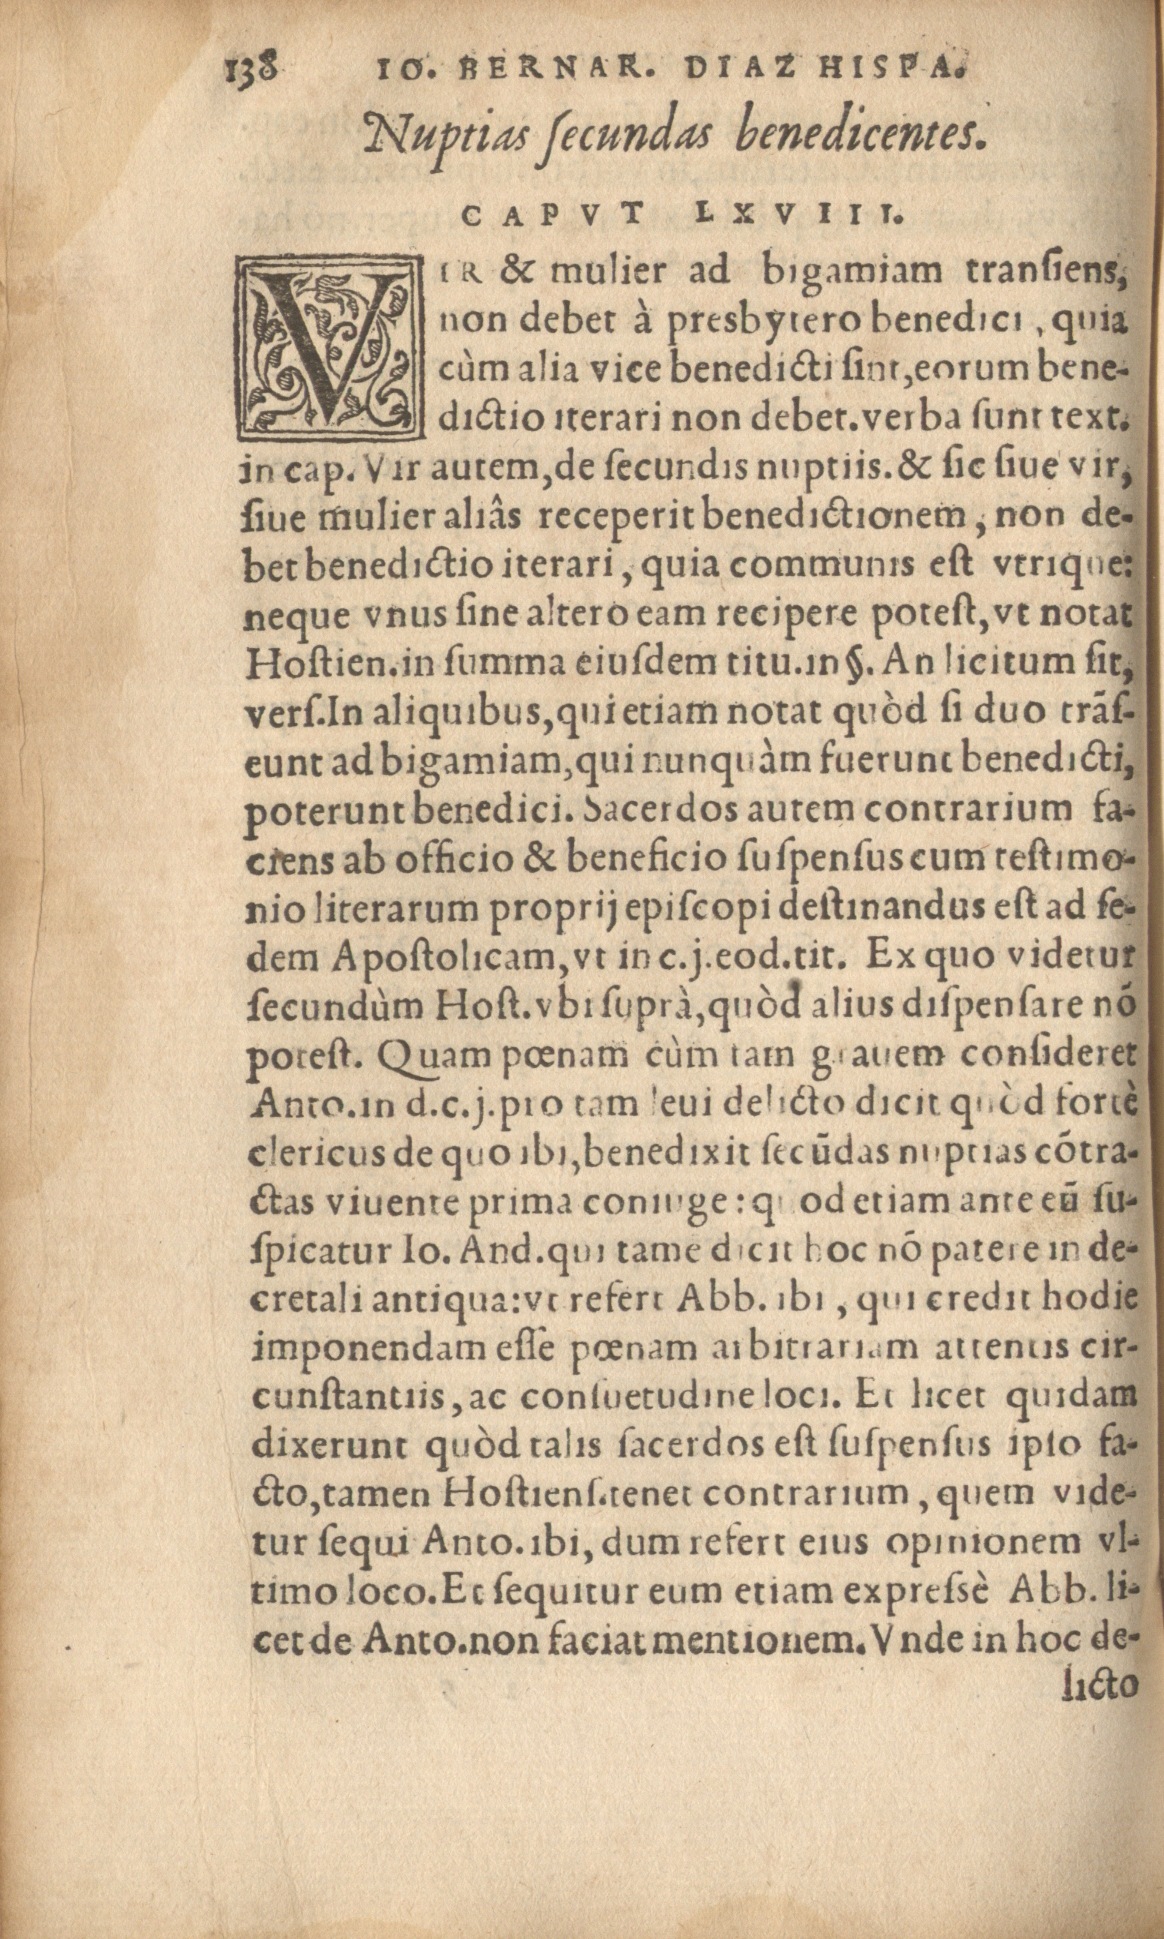 138 IO. BERNAR. DIAZ HISPA.
Nuptias ſecundas benedicentes.
CAPVT LXVIII.
VIR & mulier ad bigamiam tranſiens,
non debet à presbytero benedici, quia
cùm alia vice benedicti ſint, eorum bene-
dictio iterari non debet. verba ſunt text.
in cap. Vir autem, de ſecundis nuptiis. & ſic ſiue vir,
ſiue mulier aliâs receperit benedictionem, non de-
bet benedictio iterari, quia communis eſt vtrique:
neque vnus ſine altero eam recipere poteſt, vt notat
Hoſtien. in ſumma eiuſdem titu. in §. An licitum ſit,
verſ. In aliquibus, qui etiam notat quòd ſi duo trãſ-
eunt ad bigamiam, qui nunquàm fuerunt benedicti,
poterunt benedici. Sacerdos autem contrarium fa-
ciens ab officio & beneficio ſuſpenſus cum teſtimo-
nio literarum proprij epiſcopi deſtinandus eſt ad ſe-
dem Apoſtolicam, vt in c. j. eod. tit. Ex quo videtur
ſecundùm Hoſt. vbi ſuprà, quòd alius diſpenſare nõ
poteſt. Quam pœnam cùm tam grauem conſideret
Anto. in d. c. j. pro tam leui delicto dicit quòd fortè
clericus de quo ibi, benedixit ſecũdas nuptias cõtra-
ctas viuente prima coniuge: quod etiam ante eũ ſu-
ſpicatur Io. And. qui tame dicit hoc nõ patere in de-
cretali antiqua: vt refert Abb. ibi, qui credit hodie
imponendam eſſe pœnam arbitrariam attentis cir-
cunſtantiis, ac conſuetudine loci. Et licet quidam
dixerunt quòd talis ſacerdos eſt ſuſpenſus ipſo fa-
cto, tamen Hoſtienſ. tenet contrarium, quem vide-
tur ſequi Anto. ibi, dum refert eius opinionem vl-
timo loco. Et ſequitur eum etiam expreſsè Abb. li-
cet de Anto. non faciat mentionem. Vnde in hoc de-
licto